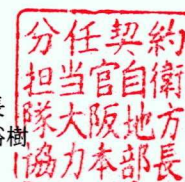 長
裕樹
分任契約
担当官自衛
隊大阪地方
協力本部長